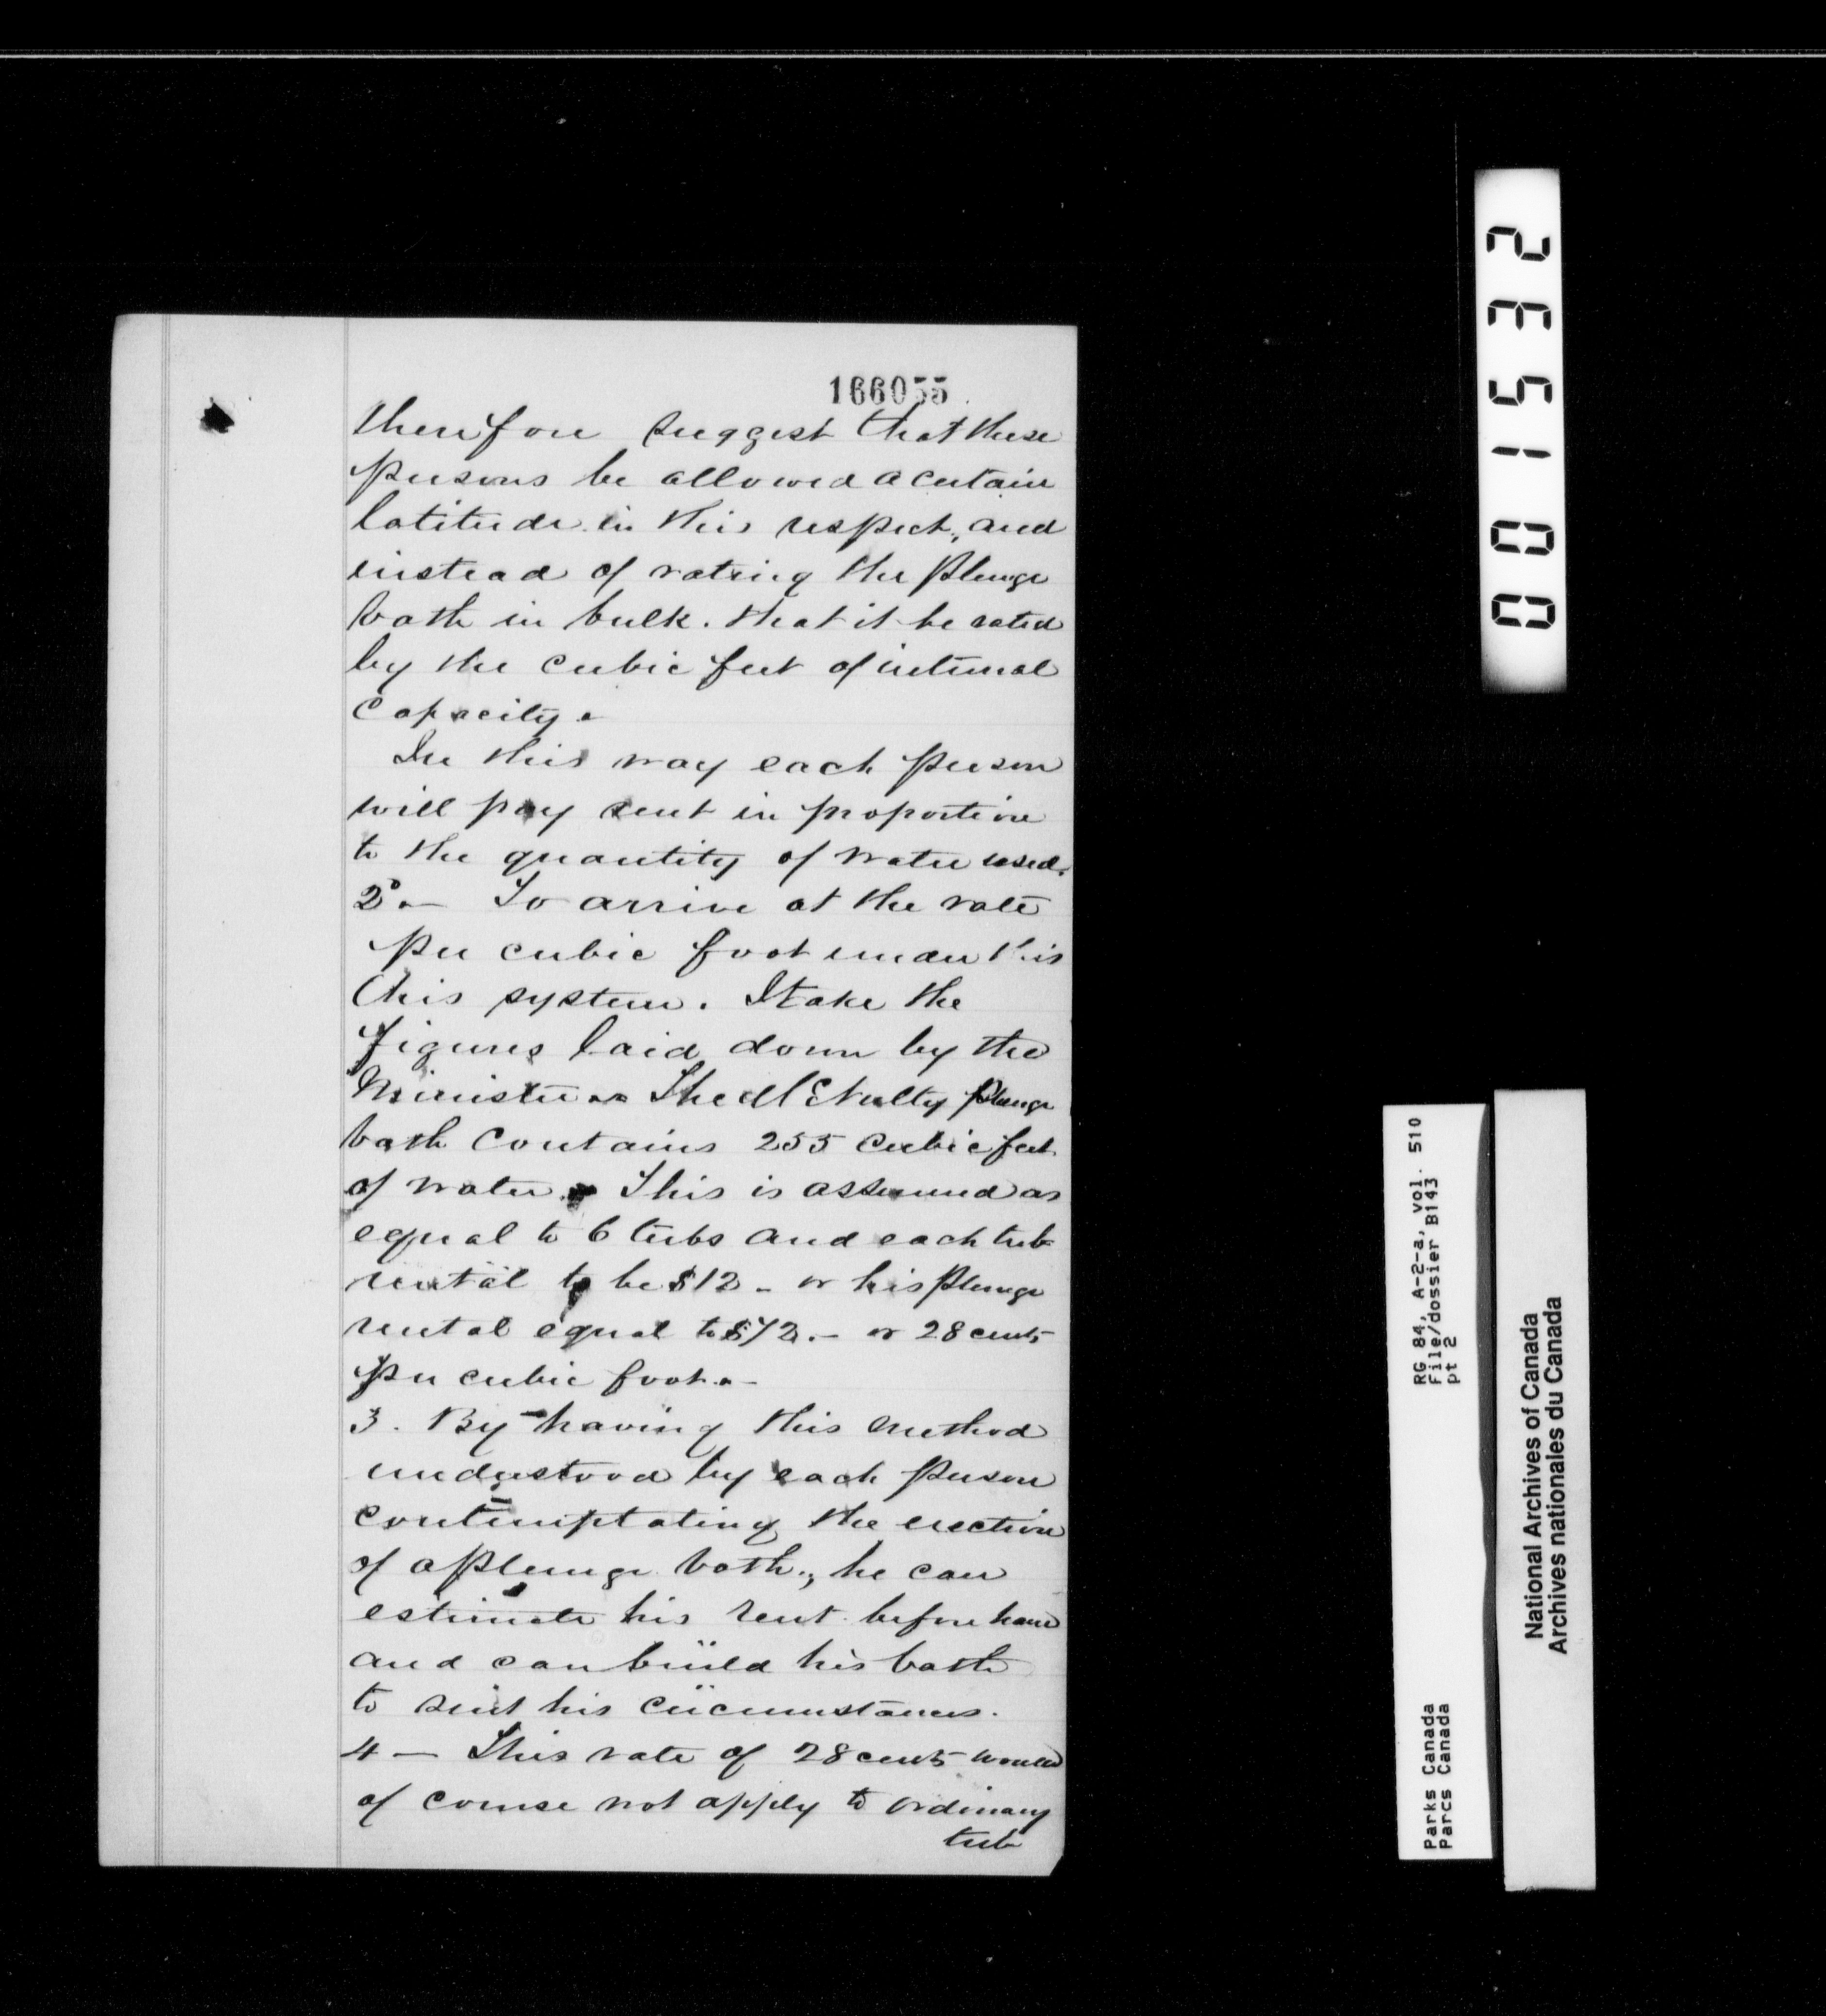 166055
therefore suggest that these
persons be allowed a certain
latitude in this respect, and
instead of rating the plunge
bath in bulk. that it be rated
by the cubic feet of internal
capacity.
In this way each person
will pay rent in proportion
to the quantity of water used.
2° - To arrive at the rate
per cubic foot under this
this system. I take the
figures laid down by the
Minister - The McNulty plunge
bath contains 255 cubic feet
of water. This is assumed as
equal to 6 tubs and each tub
rental to be $12 - or his plunge
rental equal to $72. - or 28 cents
per cubic foot. -
3. By having this method
understood by each person
contemplating the erection
of a plunge bath, he can
estimate his rent beforehand
and can build his bath
to suit his circumstances.
4 - This rate of 28 cents would
of course not apply to ordinary
tub
001532
RG 84, A-2-a, vol. 510
File/dossier B143
pt 2
Parks Canada
Parcs Canada
National Archives of Canada
Archives nationales du Canada